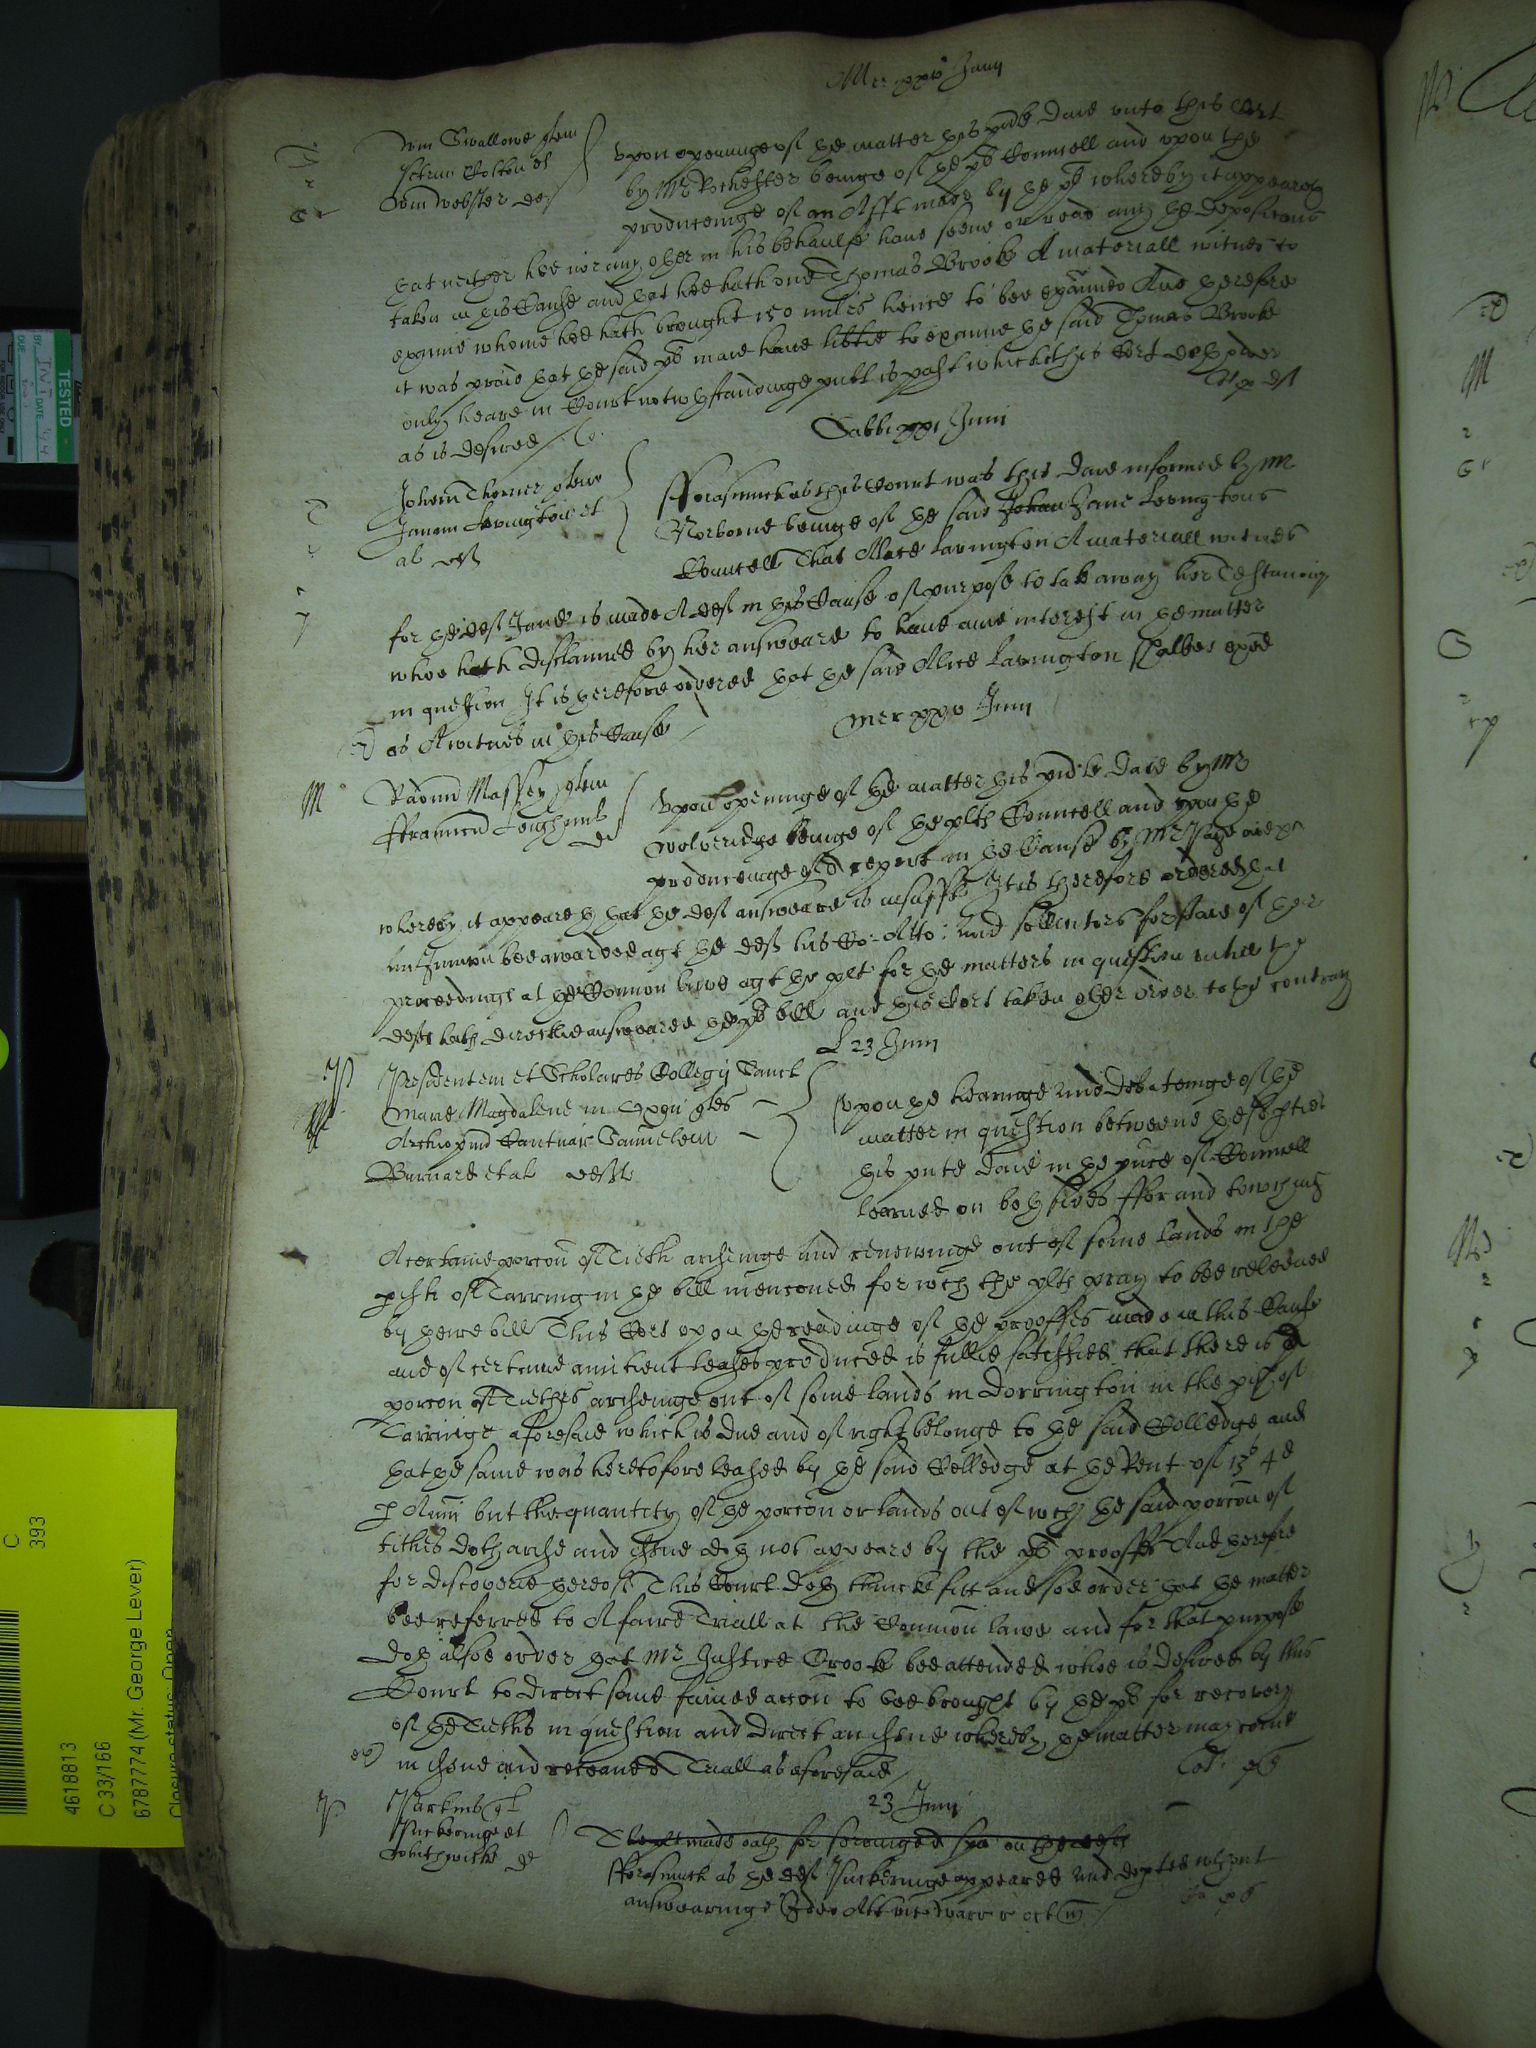 Mer xxv Junij
Wm Swallowe quer
Wm Webster def
Upon openinge of ye matter this pnte Daie unto this Cort
by Mr Rochester beinge of ye pts Counsell and upon the
produceinge of an Afft made by ye pt whereby it appeareth
yat neither hee nor any other in his behaulfe have seene or read any ye deposicons
taken in this Cause and yat hee hath one Thomas Brooke A materiall witnes to
examine whome hee hath brought 150 miles hence to bee examined And therefore
it was praid yat ye said pt maie have libtie to examine ye said Thomas Brooke
only heare in Court notwthstandinge publ is past which this Cort doth order
as is desired
Sabbi xxi Junij
Johem Thorner quer
Janam Lavington et
al def
Fforasmuch as this Court was this Daie informed by Mr
Norborne beinge of ye said Johan Jane Lavingtons
Councell That Alice Lavington A materiall witnes
for ye def Jane is made A def in this Cause of purpose to take away her Testimony
whoe hath disclaimed by her answeare to have anie interest in ye matter
in question It is therefore ordered yat ye said Alice Lavington shalbee exed
as A witnes in this Cause
Mer xxv Junij
M
Radum Massey quer
def
Upon openinge of ye matter this pnte Daie by Mr
Wolveridge beinge of ye plts Councell and upon ye
produceinge of A report in ye Cause by Mr Page
whereby it appeareth yat ye def answeare is insufft It is therefore ordered yat
an Injunccon bee awarded agt ye def his Co: Atto: and sollicitors for staie of her
proceedings at ye Common lawe agt ye plt for ye matters in question untill the
deft hath directlie answeared ye pts bill and this Cort taken other order to ye contrary
L 23 Junij
Presidentem et Scholares Collegij Sanct
Marie Magdalene in Oxon quer
Archiepm Cantuar Samuelem
Barnard et al defts
Upon ye hearinge and Debateinge of ye
matter in question betweene ye said pties
this pnte Daie in ye pnce of Councell
learned on both sides ffor and towching
A certaine porcon of Tieth ariseinge and reneweinge out of some lands in the
pish of Tarring in ye bill menconed for wch the plts pray to bee releived
by theire bill This Cort upon ye readinge of ye prooffes made in this Cause
and of certaine auncient leases produced is fullie satisfied that there is A
porcon of Tiethes ariseinge out of some lands in Dorrington in the pish of
Tarringe aforesaid which is due and of right belonge to ye said Colledge and
yat ye same was heretofore leased by ye said Colledge at ye Rent of 13s 4d
p Annu but the quantity of ye porcon or lands out of wch ye said porcon of
tithes doth arise and issue doth not appeare by the pts prooffs And therefore
for discoverie thereof This Court doth thincke fitt and soe order yat ye matter
bee referred to A faire Triall at the Common lawe and for that purpose
doth alsoe order yat Mr Justice Crooke bee attended whoe is desired by this
Court to direct some fained accon to bee brought by ye pts for recovery
of ye Tieths in question and direct an issue whereby ye matter may come
in issue and receave A Triall as aforesaid
23 Junij
Parkins ql
Puckeringe et
The plt made oath for serveinge A spa on the defts
Fforasmuch as ye def Puckeringe appeared and depted wthout
answearinge
TESTED
BY INT DATE
DUE
C
393
4618813
C 33/166
6787774 (Mr. George Lever)
Closure status: Open